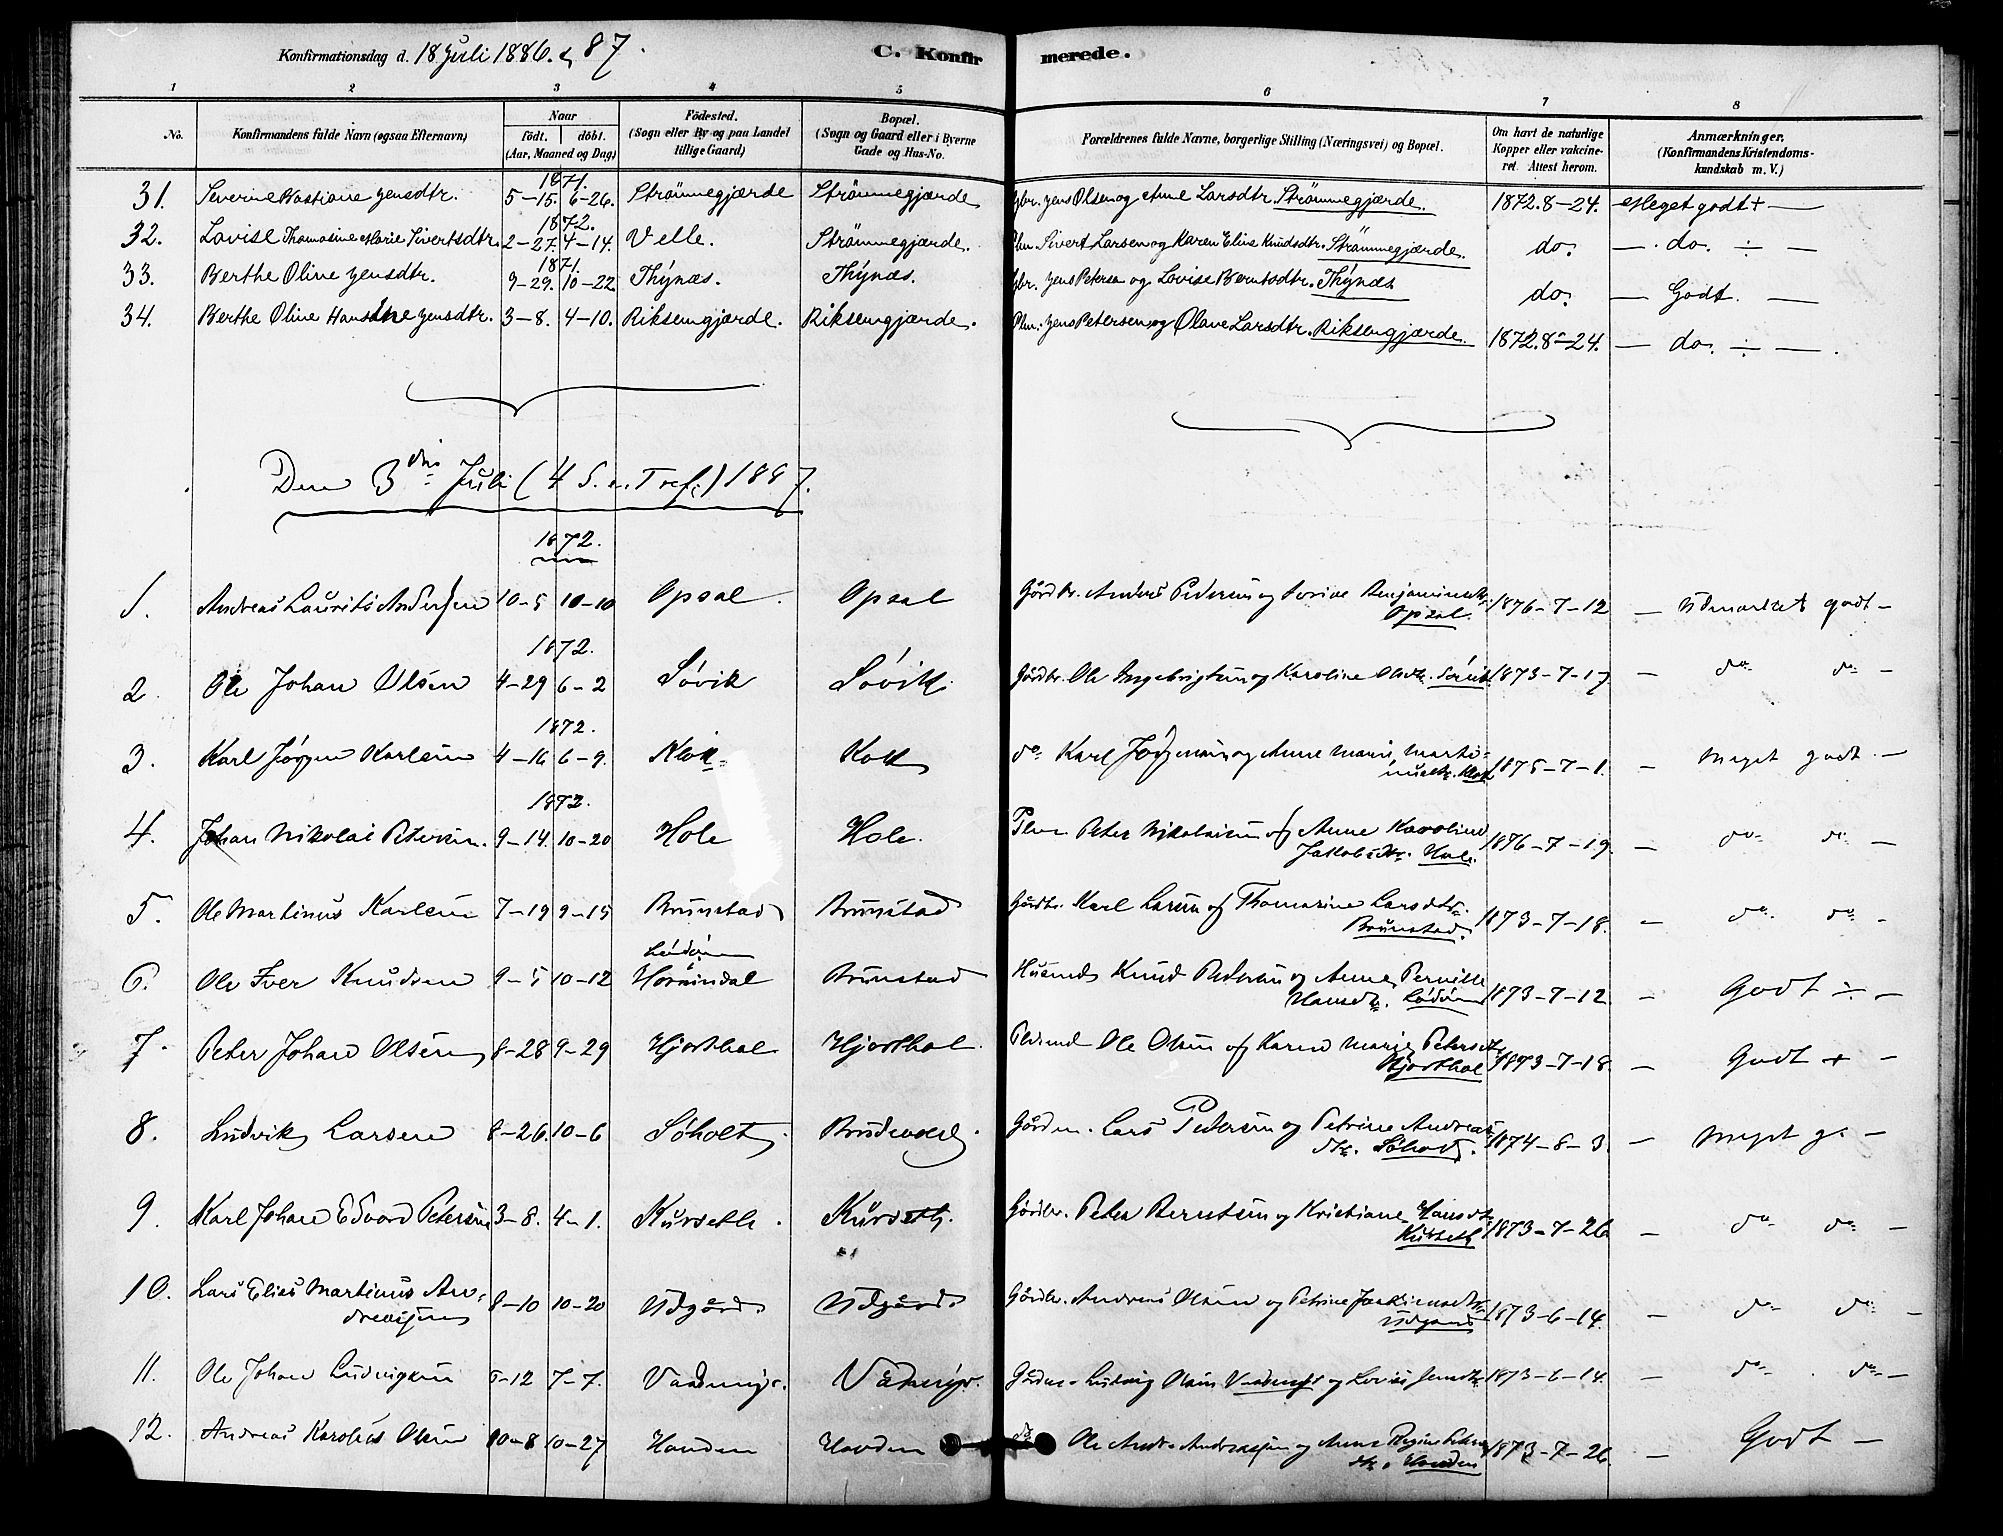 Konfirmationsdag d. 18 Juli 1886. & 87.
C. Konfirmerede.
1 2 3 4 5 6 7 8
No. Konfirmandens fulde Navn (ogsaa Efternavn)
Naar født. døbt. (Aar, Maaned og Dag)
Fødested. (Sogn eller By og paa Landet tillige Gaard)
Bopæl. (Sogn og Gaard eller i Byerne Gade og Hus-No.
Forældrenes fulde Navne, borgerlige Stilling (Næringsvei) og Bopæl.
Om havt de naturlige Kopper eller vakcineret. Attest herom.
Anmærkninger, (Konfirmandens Kristendomskundskab m. V.)
1871.
31. Severine Bastiane Jensdtr. 5-15. 6-26. Strömmegjærde Strömmegjærde Gbr. Jens Olsen og Anne Larsdtr. Strömmegjærde. 1872. 8-24. Meget godt + —
1872.
32. Lovise Thomasine Marie Sivertsdtr. 2-27. 4-14. Velle. Strömmegjærde. Plm. Sivert Larsen og Karen Eline Knudsdtr. Strömmegjærde. do. — do. ÷ —
1871.
33. Berthe Oline Jensdtr. 9-29. 10-22. Thÿnæs. Thÿnæs. Gbr. Jens Petersen og Lovise Berntsdtr. Thÿnæs do. — Godt. —
34. Berthe Oline Hansine Jensdtr. 3-8. 4-10. Riksemgjærde. Riksemgjærde. Plm. Jens Petersen og Olave Larsdtr. Riksemgjærde. 1872. 8-24. — do. ÷ —.
Den 3die Juli (4 S. e. Tref.) 1887.
1872.
1. Andreas Laurits Andersen 10-5 10-10 Opsal. Opsal Gårdbr. Anders Pedersen og Serine Benjaminsdtr. Opsal. 1876-7-12 — Udmærket godt —
1872.
2. Ole Johan Olsen 4-29 6-2 Søvik Søvik. Gårdbr. Ole Ingebrigtsen og Karoline Olsdtr. Søvik 1873-7-17 — do do —
1872.
3. Karl Jörgen Karlsen 4-16 6-9. Klok Kok do Karl Jörgensen og Anne Marie Martinusdtr. Klok 1875-7-1. — Meget godt —
1872.
4. Johan Nikolai Petersen. 9-14. 10-20 Hole Hole. Plm Peter Nikolaisen og Anne Karoline Jakobsdtr. Hole. 1876-7-19. — do do —
5. Ole Martinus Karlsen 7-19 9-15 Brunstad Brunstad Gårdbr. Karl Larsen og Thomasine Larsdtr. Brunstad. 1873-7-18. — do. do. —
6. Ole Iver Knudsen 9-5 10-12 Hornindal Brunstad Husmd Knud Pedersen og Anne Pernille Hansdtr. 1873-7-12. — Godt ÷ —
7. Peter Johan Olsen 8-28 9-29 Hjorthol Hjorthol. Ole Olsen og Karen Marie Petersdtr Hjorthol 1873-7-18. — Godt + —
8. Ludvik Larsen 8-26. 10-6 Søholt. Gårdm. Lars Pedersen og Petrine Andreasdtr. Søholt. 1874-8-3. — Meget g. —
9. Karl Johan Edvard Petersen 3-8. 4-1. Kurseth. Kurseth. Gårdbr. Peter Berntsen og Kristiane Hansdtr Kurseth 1873-7-26 — do do —
10. Lars Elias Martinus Andreassen 8-10 10-20 Udgård. Udgård. Gårdbr. Andreas Olsen og Petrine Joakimsdtr Udgård 1873-6-14. — do do —
11. Ole Johan Ludvigsen 5-12 7-7. Vadmyr. Vadmyr. Gårdbr. Ludvig Olsen Vadmyr og Lovise Jensdtr. 1873-6-14. — do. do —
12. Andreas Karolus Olsen 10-8 10-27 Hovden Hovden do Ole Andr. Andreassen og Anne Regine dtr. Hovden 1873-7-26. — Godt —